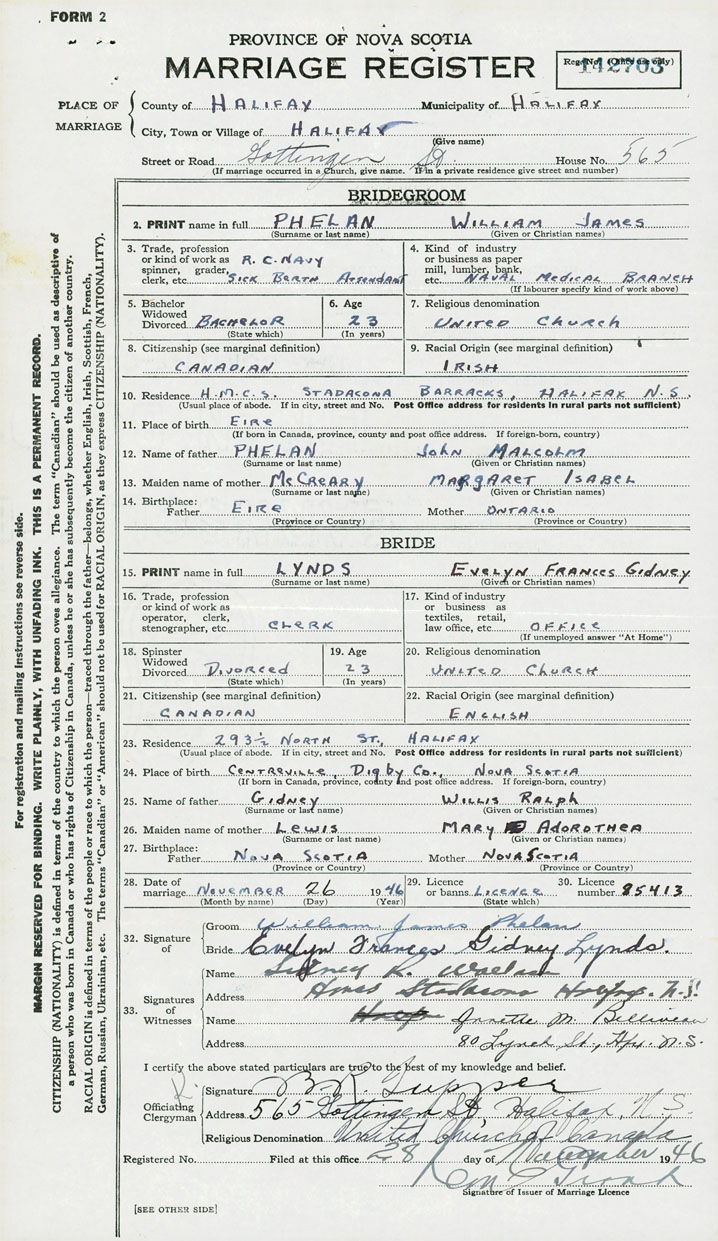 FORM 2
PROVINCE OF NOVA SCOTIA
MARRIAGE REGISTER
Reg. No. (Office use only)
142703
PLACE OF MARRIAGE
County of HALIFAX Municipality of HALIFAX
City, Town or Village of HALIFAX
(Give name)
Street or Road Gottingen St. House No. 565
(If marriage occurred in a Church, give name. If in a private residence give street and number)
BRIDEGROOM
2. PRINT name in full PHELAN WILLIAM JAMES
(Surname or last name) (Given or Christian names)
3. Trade, profession or kind of work as spinner, grader, clerk, etc. R.C. NAVY SICK BERTH ATTENDANT
4. Kind of industry or business as paper mill, lumber, bank, etc. NAVAL MEDICAL BRANCH
(If labourer specify kind of work above)
5. Bachelor Widowed Divorced BACHELOR
(State which)
6. Age 23
(In years)
7. Religious denomination
UNITED CHURCH
8. Citizenship (see marginal definition)
CANADIAN
9. Racial Origin (see marginal definition)
IRISH
10. Residence H.M.C.S. STADACONA BARRACKS, HALIFAX N.S.
(Usual place of abode. If in city, street and No. Post Office address for residents in rural parts not sufficient)
11. Place of birth EIRE
(If born in Canada, province, county and post office address. If foreign-born, country)
12. Name of father PHELAN JOHN MALCOLM
(Surname or last name) (Given or Christian names)
13. Maiden name of mother McCREARY MARGARET ISABEL
(Surname or last name) (Given or Christian names)
14. Birthplace:
Father EIRE Mother ONTARIO
(Province or Country) (Province or Country)
BRIDE
15. PRINT name in full LYNDS EVELYN FRANCES GIDNEY
(Surname or last name) (Given or Christian names)
16. Trade, profession or kind of work as operator, clerk, stenographer, etc. CLERK
17. Kind of industry or business as textiles, retail, law office, etc. OFFICE
(If unemployed answer "At Home")
18. Spinster Widowed Divorced DIVORCED
(State which)
19. Age 23
(In years)
20. Religious denomination
UNITED CHURCH
21. Citizenship (see marginal definition)
CANADIAN
22. Racial Origin (see marginal definition)
ENGLISH
23. Residence 293½ NORTH ST., HALIFAX
(Usual place of abode. If in city, street and No. Post Office address for residents in rural parts not sufficient)
24. Place of birth CENTREVILLE, DIGBY CO., NOVA SCOTIA
(If born in Canada, province, county and post office address. If foreign-born, country)
25. Name of father GIDNEY WILLIS RALPH
(Surname or last name) (Given or Christian names)
26. Maiden name of mother LEWIS MARY ADOROTHEA
(Surname or last name) (Given or Christian names)
27. Birthplace:
Father NOVA SCOTIA Mother NOVA SCOTIA
(Province or Country) (Province or Country)
28. Date of marriage NOVEMBER 26 1946
(Month by name) (Day) (Year)
29. Licence or banns LICENCE
(State which)
30. Licence number 85413
32. Signature of
Groom William James Phelan
Bride Evelyn Frances Gidney Lynds.
33. Signatures of Witnesses
Name Sidney K.
Address Hmcs Stadacona Halifax. N.S.
Name Annette M. Belliveau
Address 80 Lynch St., Hfx. N.S.
I certify the above stated particulars are true to the best of my knowledge and belief.
Officiating Clergyman
Signature Tupper
Address 565 Gottingen St Halifax, N.S.
Religious Denomination United Church of Canada
Registered No. Filed at this office 28 day of November 1946
Signature of Issuer of Marriage Licence
[SEE OTHER SIDE]
For registration and mailing instructions see reverse side.
MARGIN RESERVED FOR BINDING. WRITE PLAINLY, WITH UNFADING INK. THIS IS A PERMANENT RECORD.
CITIZENSHIP (NATIONALITY) is defined in terms of the country to which the person owes allegiance. The term "Canadian" should be used as descriptive of
a person who was born in Canada or who has rights of Citizenship in Canada, unless he or she has subsequently become the citizen of another country.
RACIAL ORIGIN is defined in terms of the people or race to which the person—traced through the father—belongs, whether English, Irish, Scottish, French,
German, Russian, Ukrainian, etc. The terms "Canadian" or "American" should not be used for RACIAL ORIGIN, as they express CITIZENSHIP (NATIONALITY).